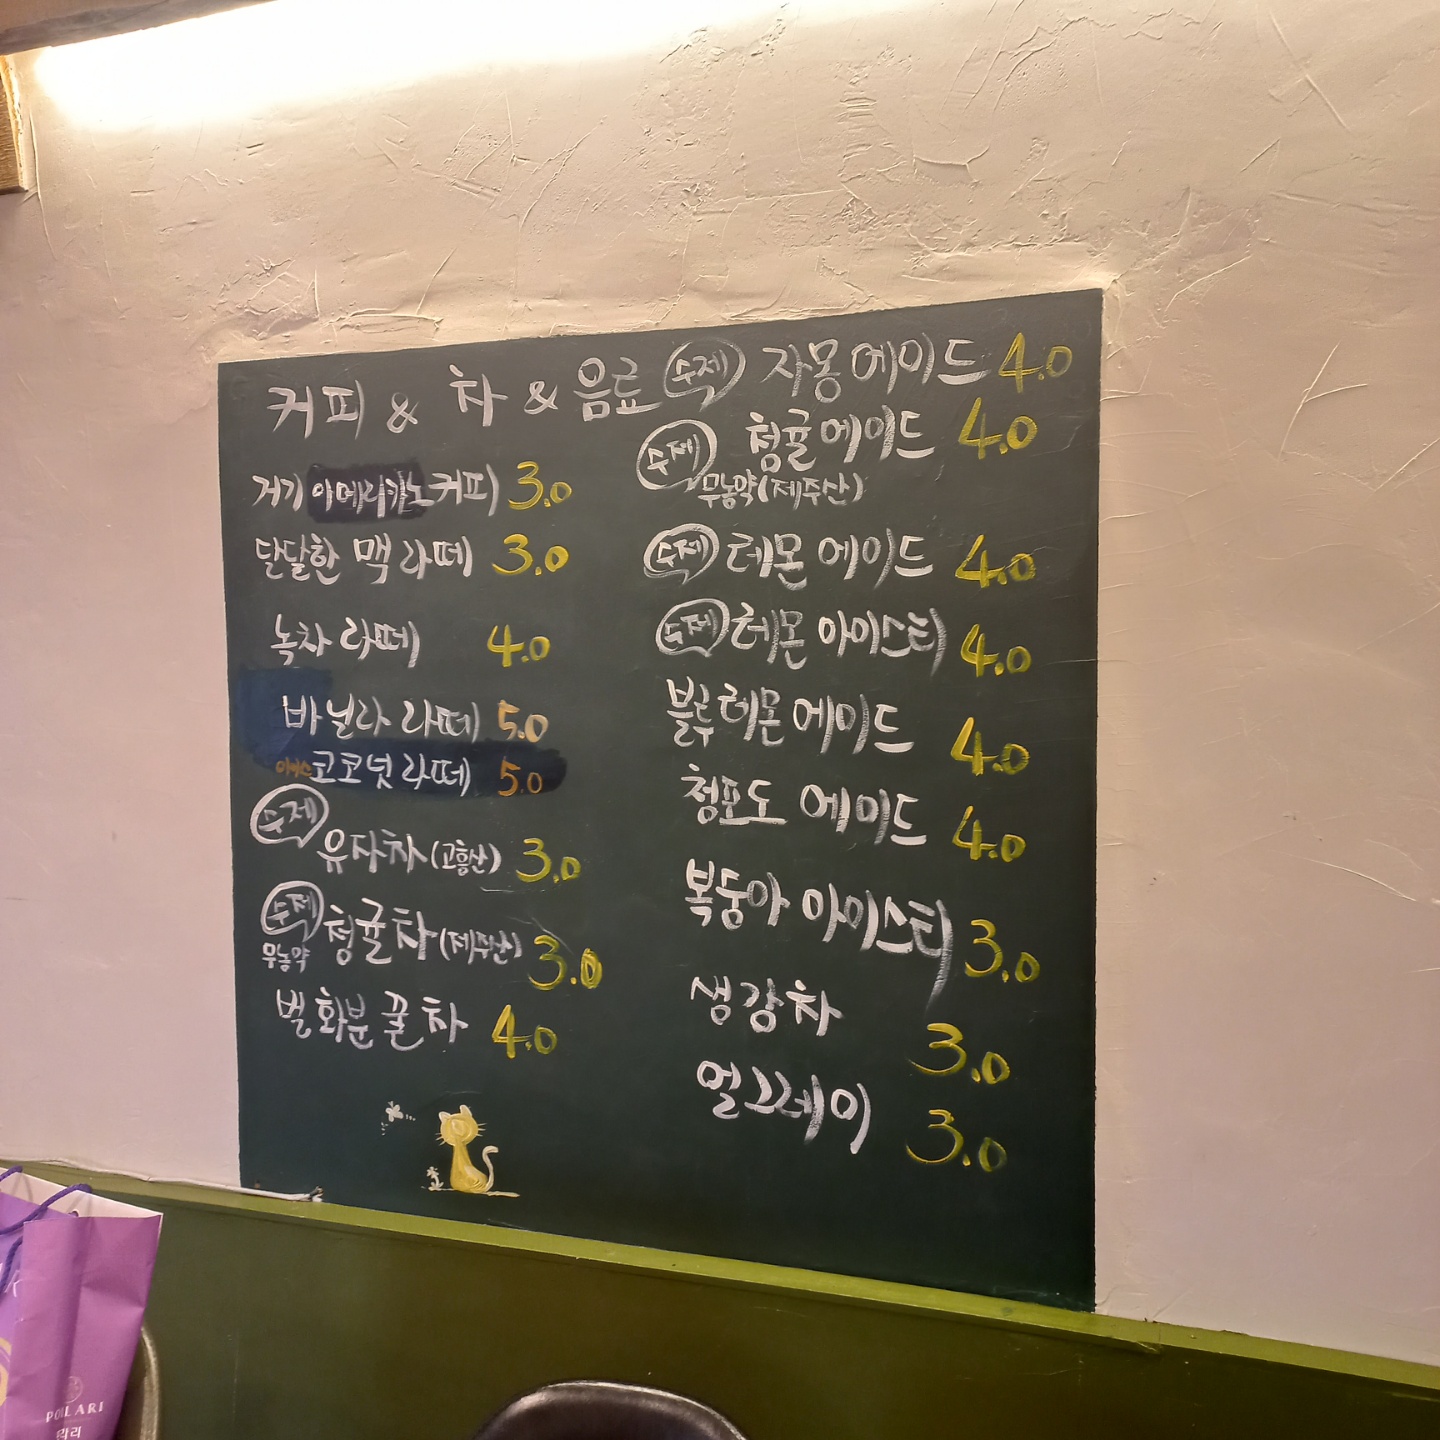 커피 & 차 & 음료
거기 아메리카노 커피 3.0
달달한 맥 라떼 3.0
녹차 라떼 4.0
바닐라 라떼 5.0
코코넛 라떼 5.0
수제
유자차 (고흥산) 3.0
수제 청귤차 (제주산) 3.0
무농약
벌화분 꿀차 4.0
수제 자몽 에이드 4.0
수제 청귤 에이드 4.0
무농약 (제주산)
수제 레몬 에이드 4.0
수제 레몬 아이스티 4.0
블루 레몬 에이드 4.0
청포도 에이드 4.0
복둥아 아이스티 3.0
생강차 3.0
얼그레이 3.0